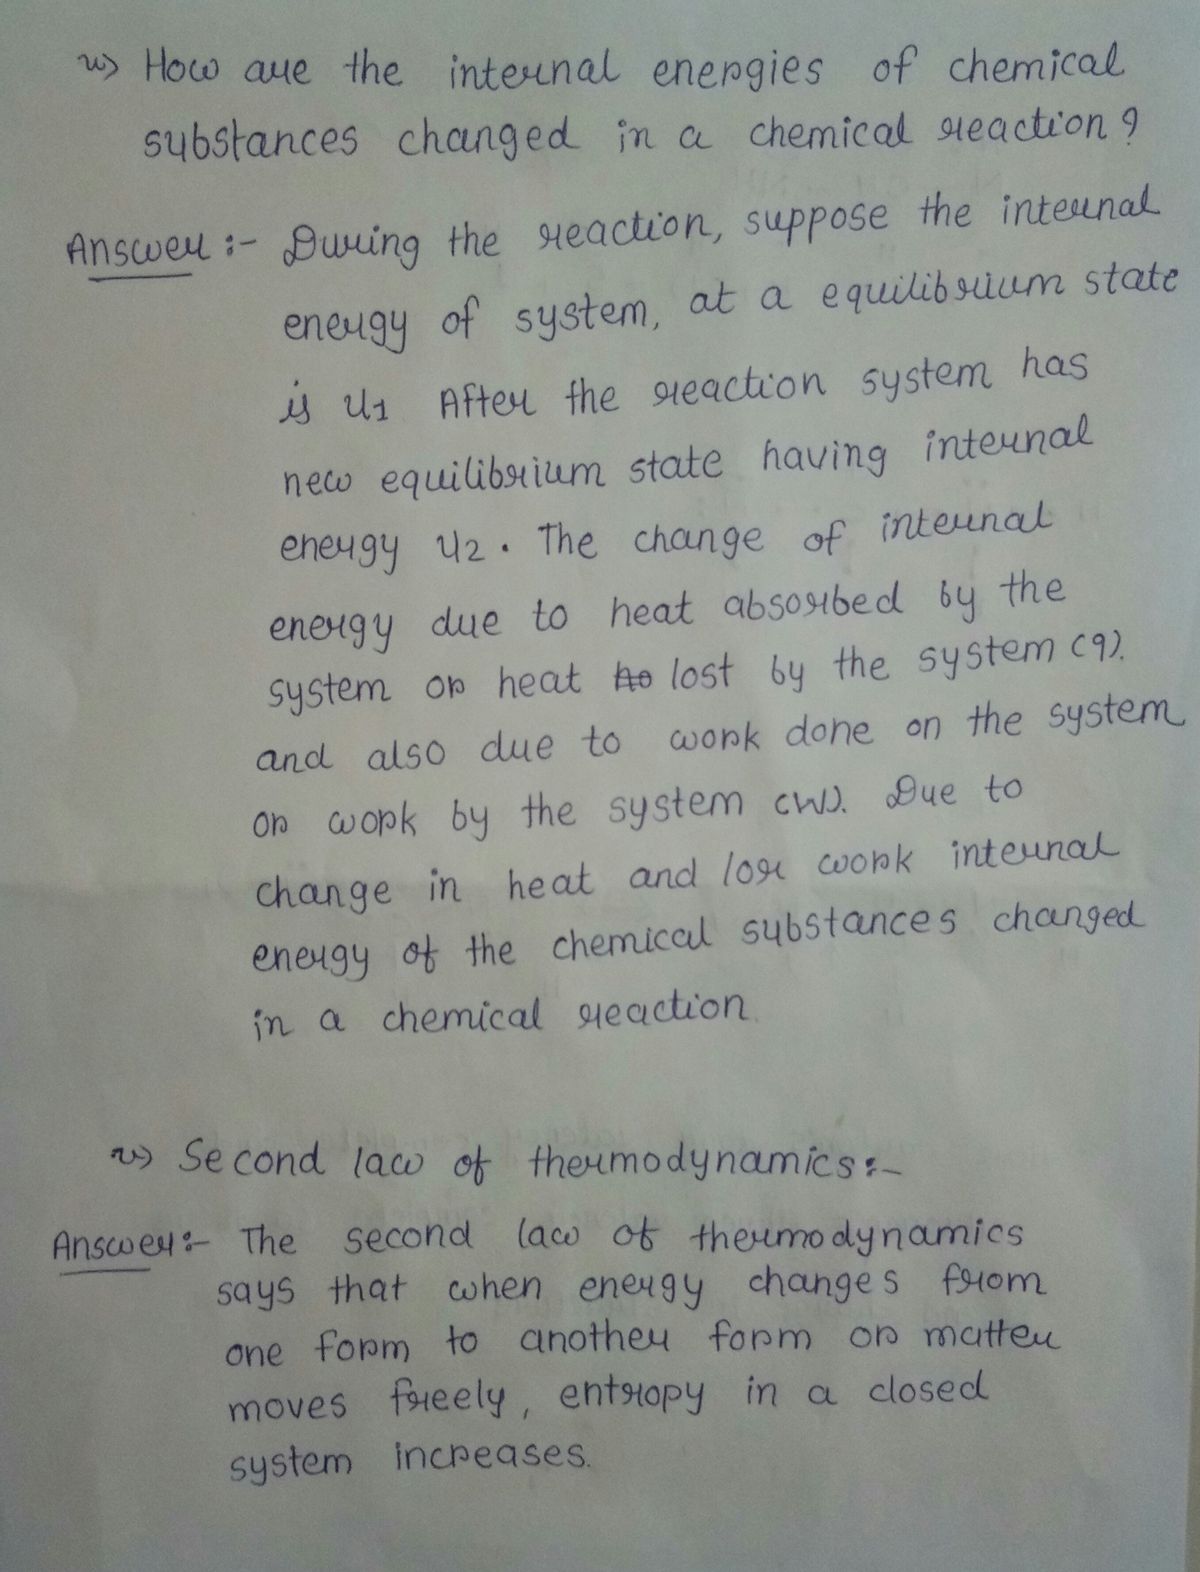 iv) How are the internal energies of chemical
substances changed in a chemical reaction?
Answer :- During the reaction, suppose the internal
energy of system, at a equilibrium state
is U1 After the reaction system has
new equilibrium state having internal
energy U2. The change of internal
energy due to heat absorbed by the
system or heat lost by the system (q).
and also due to work done on the system
or work by the system (W). Due to
change in heat and /or work internal
energy of the chemical substances changed
in a chemical reaction
v) Second law of thermodynamics:-
Answer:- The second law of thermodynamics
says that when energy changes from
one form to another form or matter
moves freely, entropy in a closed
system increases.